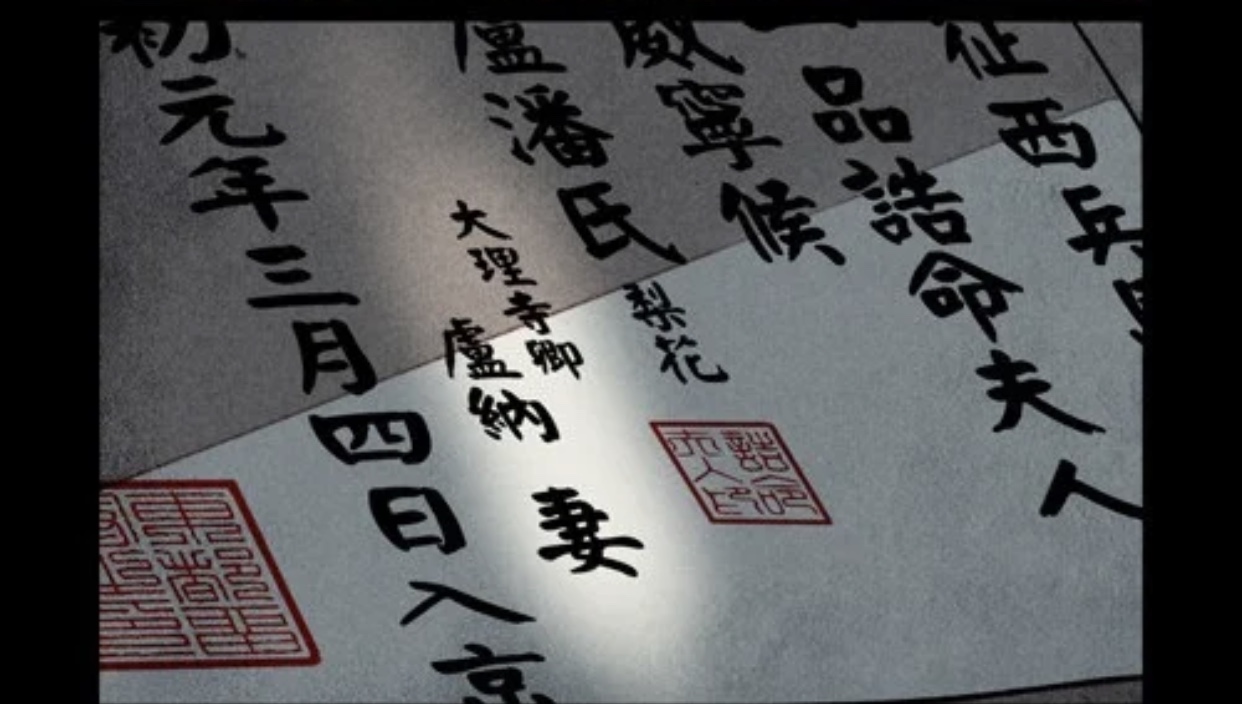 征西兵
一品誥命夫人
威寧候
盧潘氏梨花
大理寺卿
盧納
妻
初元年三月四日入京
誥命
夫人印